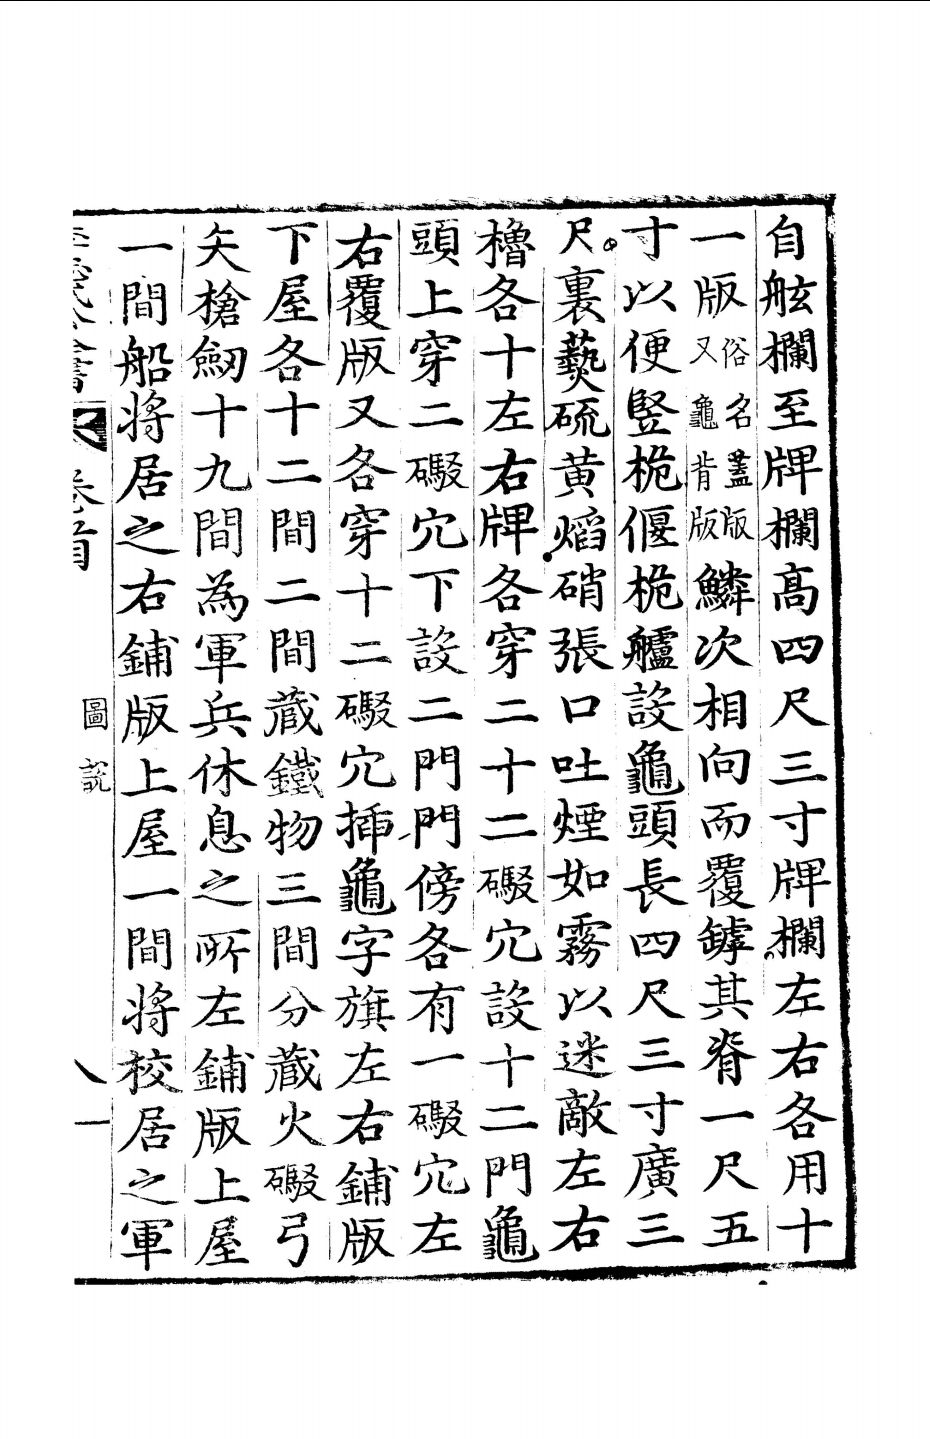 自舷欄至牌欄高四尺三寸牌欄左右各用十
一版俗名蓋版又龜背版鱗次相向而覆罅其脊一尺五
寸以便竪桅偃桅艫設龜頭長四尺三寸廣三
尺裏爇硫黄焰硝張口吐煙如霧以迷敵左右
櫓各十左右牌各穿二十二礮穴設十二門龜
頭上穿二礮穴下設二門門傍各有一礮穴左
右覆版又各穿十二礮穴揷龜字旗左右鋪版
下屋各十二間二間藏鐵物三間分藏火礮弓
矢槍劒十九間為軍兵休息之所左鋪版上屋
一間船将居之右鋪版上屋一間將校居之軍
全書 卷首 圖說 八一